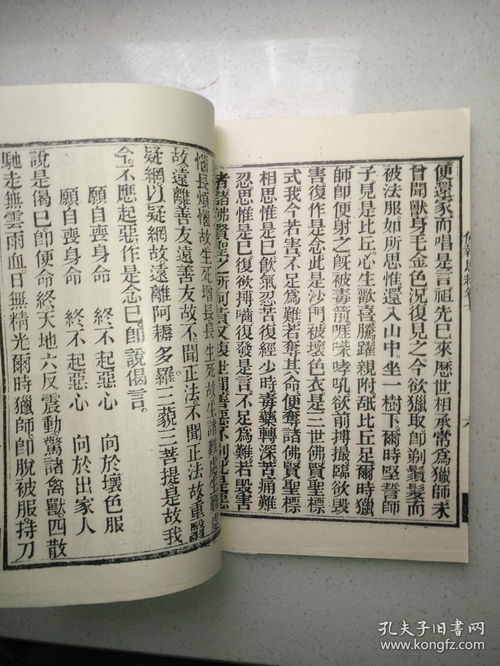 便還家而唱是言祖先已來歷世相承常為獵師未
曾聞獸身毛金色況復見之今欲獵取即剃鬚髮而
被法服如所思惟還入山中。坐一樹下爾時堅誓師
子見是比丘心生歡喜騰躍親附舐比丘足爾時獵
師即便射之既被毒箭嘊喍哮吼欲前搏撮臨欲毀
害復作是念此是沙門被壞色衣是三世佛賢聖標
式我今若害不足為難若奪其命便奪諸佛賢聖標
相思惟是已飲氣忍苦復經少時毒藥轉深苦痛難
忍思惟是已復欲搏嚙復發是言不足為難若毀害
者諸佛賢聖之所呵責又復世間善惡不別此是惡
惱長煩惱故生死增長長生死故生諸難
故遠離善友遠善友故不聞正法不聞正法故重翳
疑網以疑網故遠離阿耨多羅三藐三菩提是故我
今。不應起惡作是念已即說偈言。
願自喪身命 終不起惡心 向於壞色服
願自喪身命 終不起惡心 向於出家人
說是偈已即便命終天地六反震動驚諸禽獸四散
馳走無雲雨血日無精光爾時獵師即脫被服持刀
孔夫子旧书网